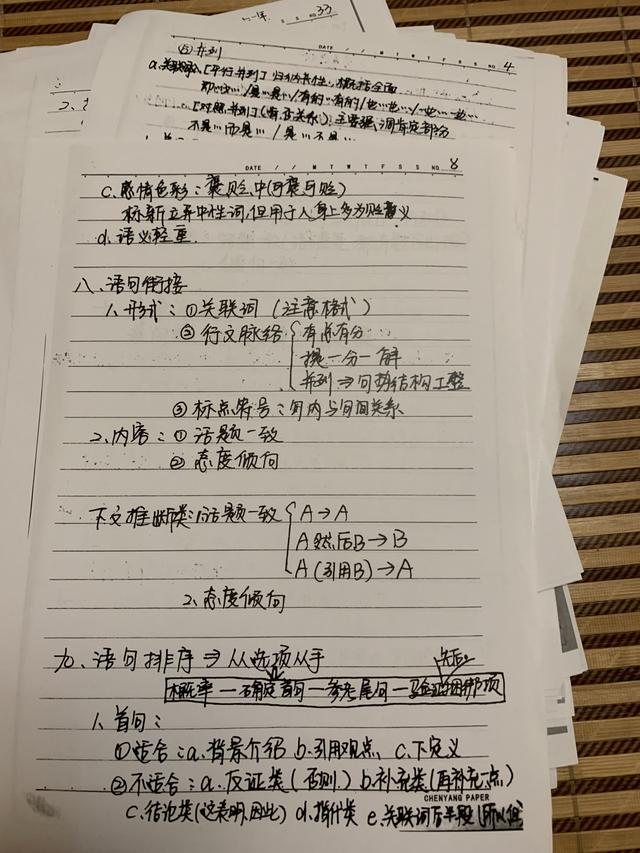 S S NO 33
DATE / / M T W T F S S NO. 4
(5) 并列
a.关联词 [平行并列] 概括全面
是…是…/有的…有的/也…也…/一边…一边…
[对照并列] 主要强调肯定部分
不是…而是…/是…不是…
DATE / / M T W T F S S NO. 8
C. 感情色彩：褒贬中(可褒可贬)
标新立异中性词,但用于人身上多为贬义
d. 语义轻重.
八、语句衔接
1.形式：①关联词（注意格式）
②行文脉络 有总有分
提一分一解
并列⇒句势结构工整
③标点符号：句内与句间关系
2.内容：①话题一致
②态度倾向
下文推断类:1.话题一致 A→A
A 然后B→B
A (引用B)→A
2.态度倾向
九、语句排序⇒从选项入手
先后
概率一确定首句一参考尾句一验证
1.首句：
①适合：a.背景介绍 b.引用观点 c.下定义
②不适合：a.反证类(否则) b.补充类(再补充一点)
CHENYANG PAPER
C.结论类(这表明,因此) d.指代类 e.关联词后半段(所以,但